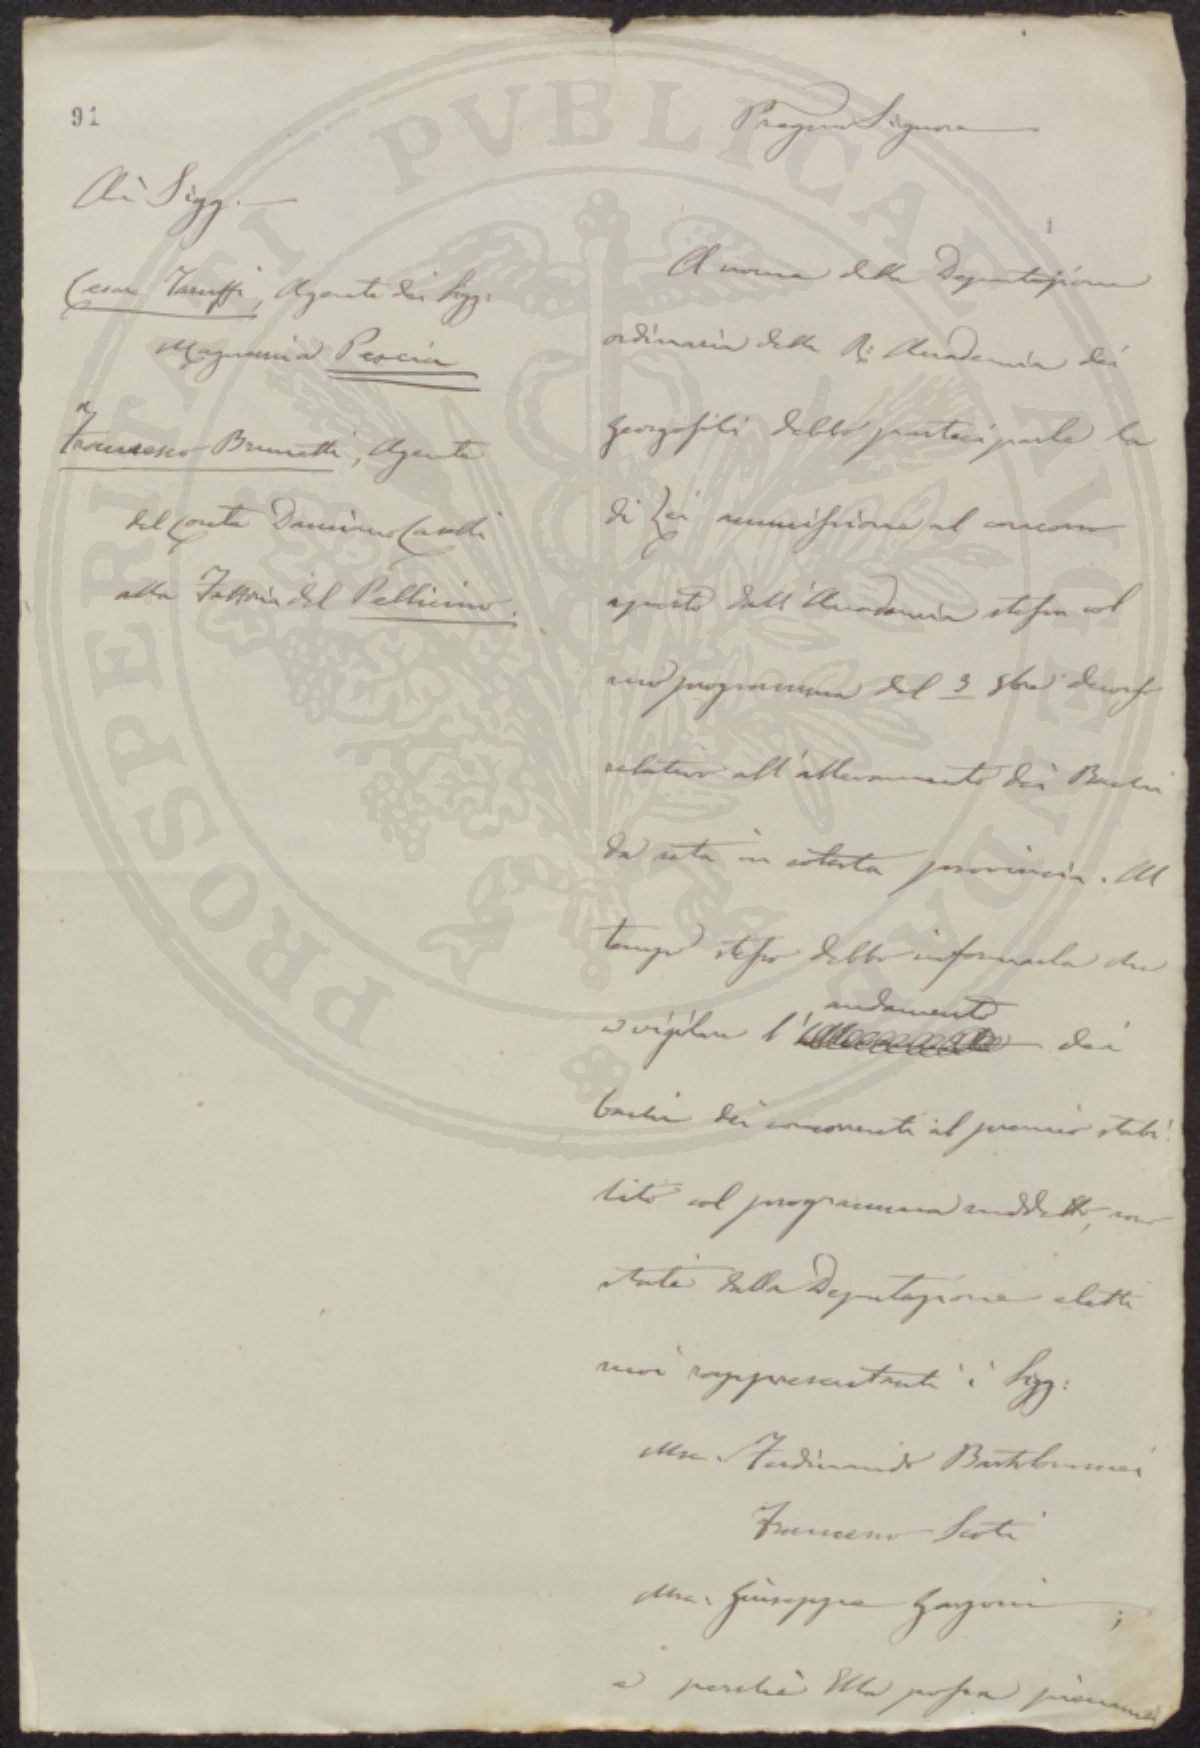 91
Pregmo Signore
Ai Sigg.
Cesare Taruffi, Agente dei Sigg:
Magnani a Pescia
Francesco Brunetti, Agente
del Conte Dammino Caselli
alla Fattoria del Pellicino.
A nome della Deputazione
ordinaria della R: Accademia dei
Georgofili debbo parteciparle la
di Lei ammissione al concorso
aperto dall'Accademia stessa col
suo programma del 3 9bre decorso
relativo all'allevamento dei Bachi
da seta in cotesta provincia. Al
tempo stesso debbo informarla che
a vigilare l'andamento dei
bachi dei concorrenti al premio stabi-
lito col programma suddetto, sono
stati dalla Deputazione eletti
suoi rappresentanti i Sigg:
Mse. Ferdinando Bartolommei
Francesco Scoti
Mse. Giuseppe Garzoni ;
e perchè Ella possa
PROSPERITATI PVBLICAE AVGENDAE